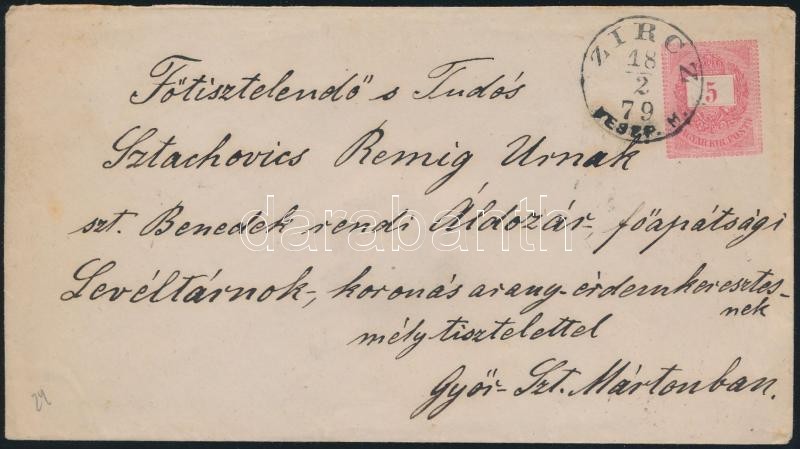 ZIRCZ
18
2
79
VESZP. M.
5
MAGYAR KIR. POSTA
Főtisztelendő s Tudós
Sztachovics Remig Urnak
szt. Benedek rendi Áldozár-, főapátsági
Levéltárnok-, koronás arany-érdemkeresztes-
nek
mély tisztelettel
Győr-Szt. Mártonban.
darabanth
29